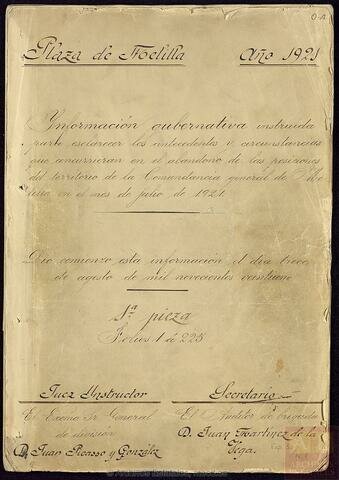 Plaza de Melilla Año 1921
Ynformación gubernativa instruida
para esclarecer los antecedentes y circunstancias
que concurrieran en el abandono de las posiciones
del territorio de la Comandancia general de Me-
lilla en el mes de julio de 1921.
Dio comienzo esta información el día trece
de agosto de mil novecientos veintiuno
1ª pieza
Folios 1 á 225
Juez Ynstructor
El Excmo Sr General
de división
D. Juan Picasso y González
Secretario
El Auditor de brigada
D. Juan Martínez de la
Vega.